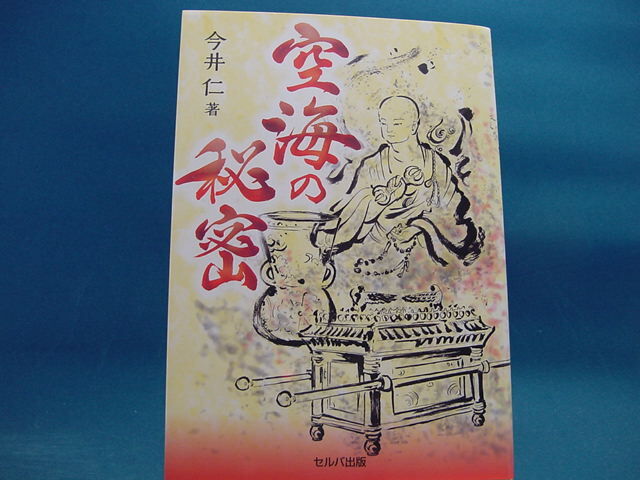 空海の秘密
今井仁 著
セルバ出版